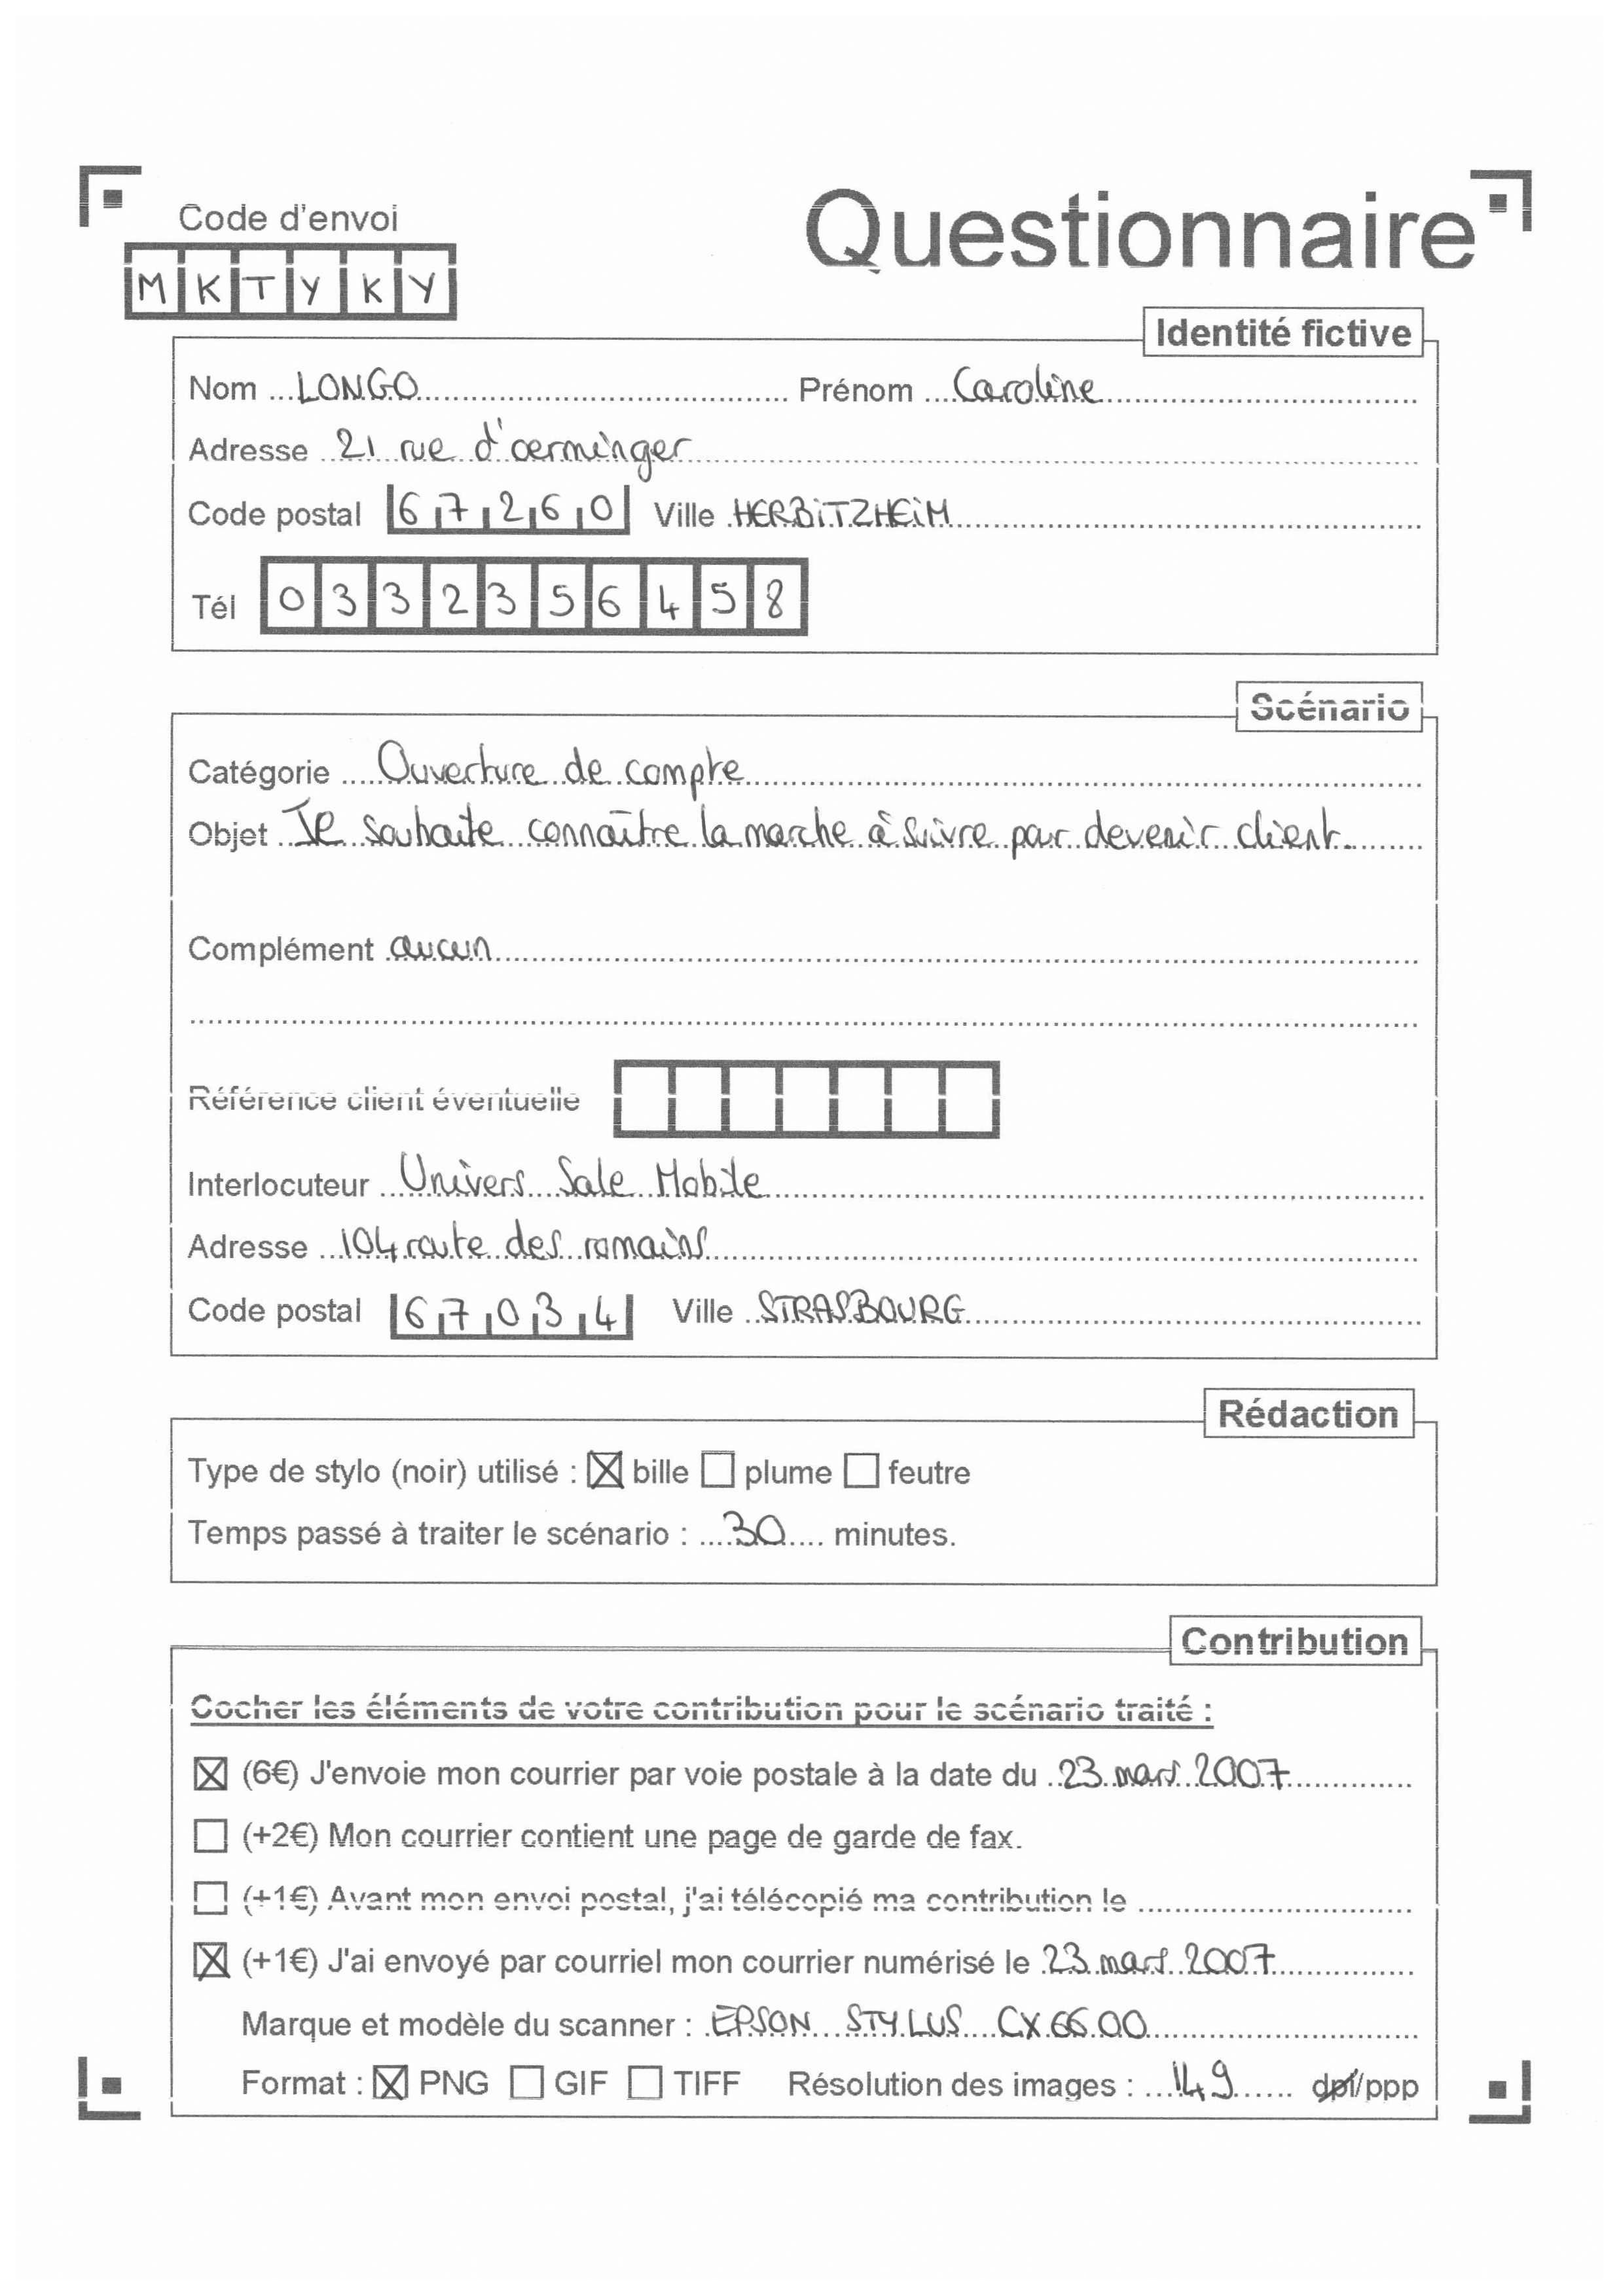 Code d'envoi
Questionnaire
MKTYKY
Identité fictive
Nom LONGO Prénom Caroline
Adresse 21 rue d'oerminger
Code postal 67260 Ville HERBITZHEIM
Tél 0332356458
Scénario
Catégorie Ouverture de compte
Objet Je souhaite connaître la marche à suivre pour devenir client.
Complément aucun
Référence client éventuelle
Interlocuteur Univers Sale Mobile
Adresse 104 route des romains
Code postal 67034 Ville STRASBOURG
Rédaction
Type de stylo (noir) utilisé : bille plume feutre
Temps passé à traiter le scénario : 30 minutes.
Contribution
Cocher les éléments de votre contribution pour le scénario traité :
(6€) J'envoie mon courrier par voie postale à la date du 23 mars 2007
(+2€) Mon courrier contient une page de garde de fax.
(+1€) Avant mon envoi postal, j'ai télécopié ma contribution le
(+1€) J'ai envoyé par courriel mon courrier numérisé le 23 mars 2007
Marque et modèle du scanner : EPSON STYLUS CX6600
Format : PNG GIF TIFF Résolution des images : 149 dpi/ppp